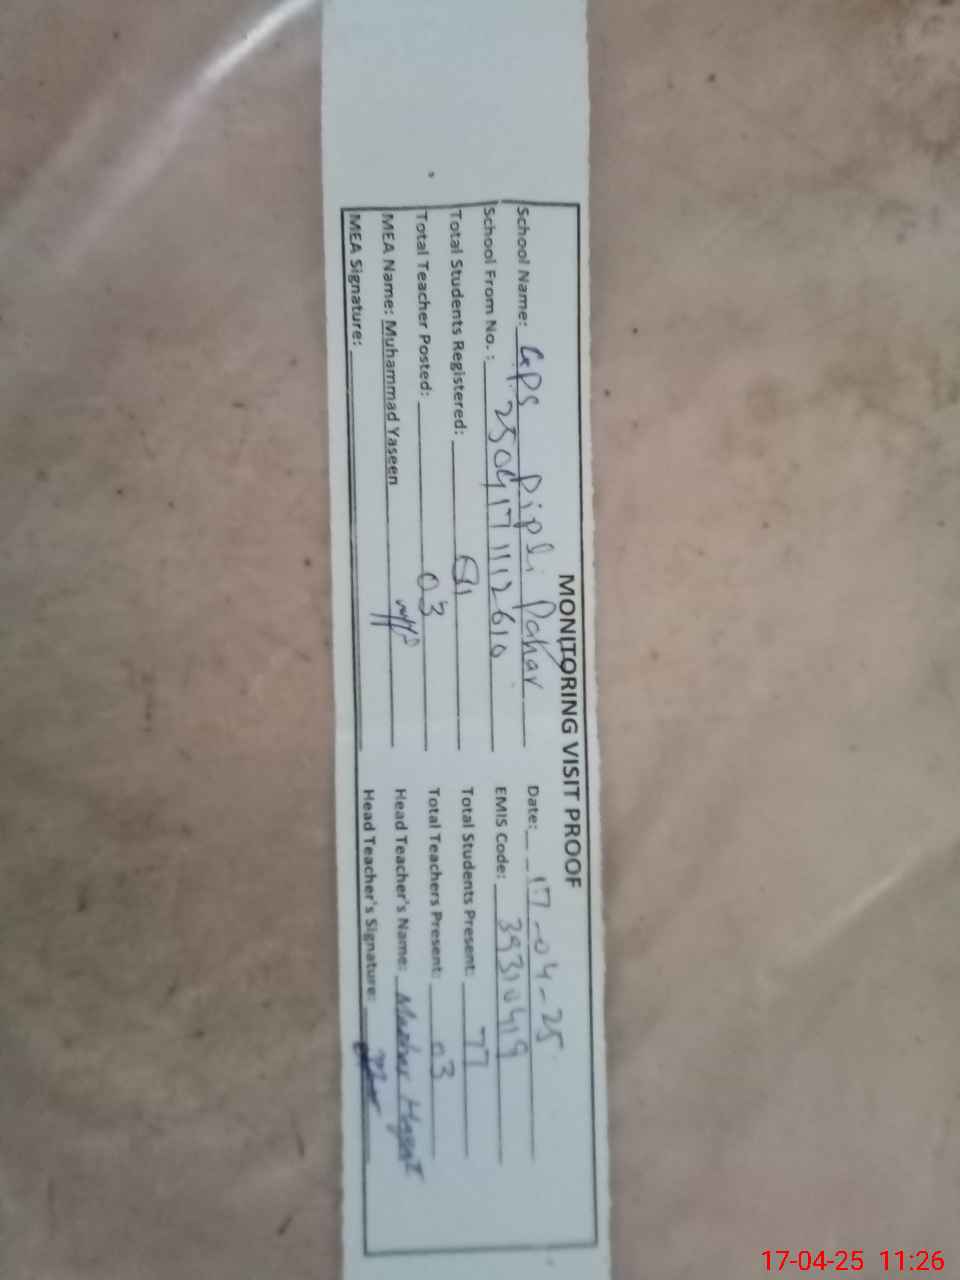 MONITORING VISIT PROOF
School Name: GPS Pipli Pahar Date: 17-04-25
School From No. : 250417 1112610 EMIS Code: 39310419
Total Students Registered: 81 Total Students Present: 77
Total Teacher Posted: 03 Total Teachers Present: 03
MEA Name: Muhammad Yaseen Head Teacher's Name: Mazhar
MEA Signature: Head Teacher's Signature:
17-04-25 11:26